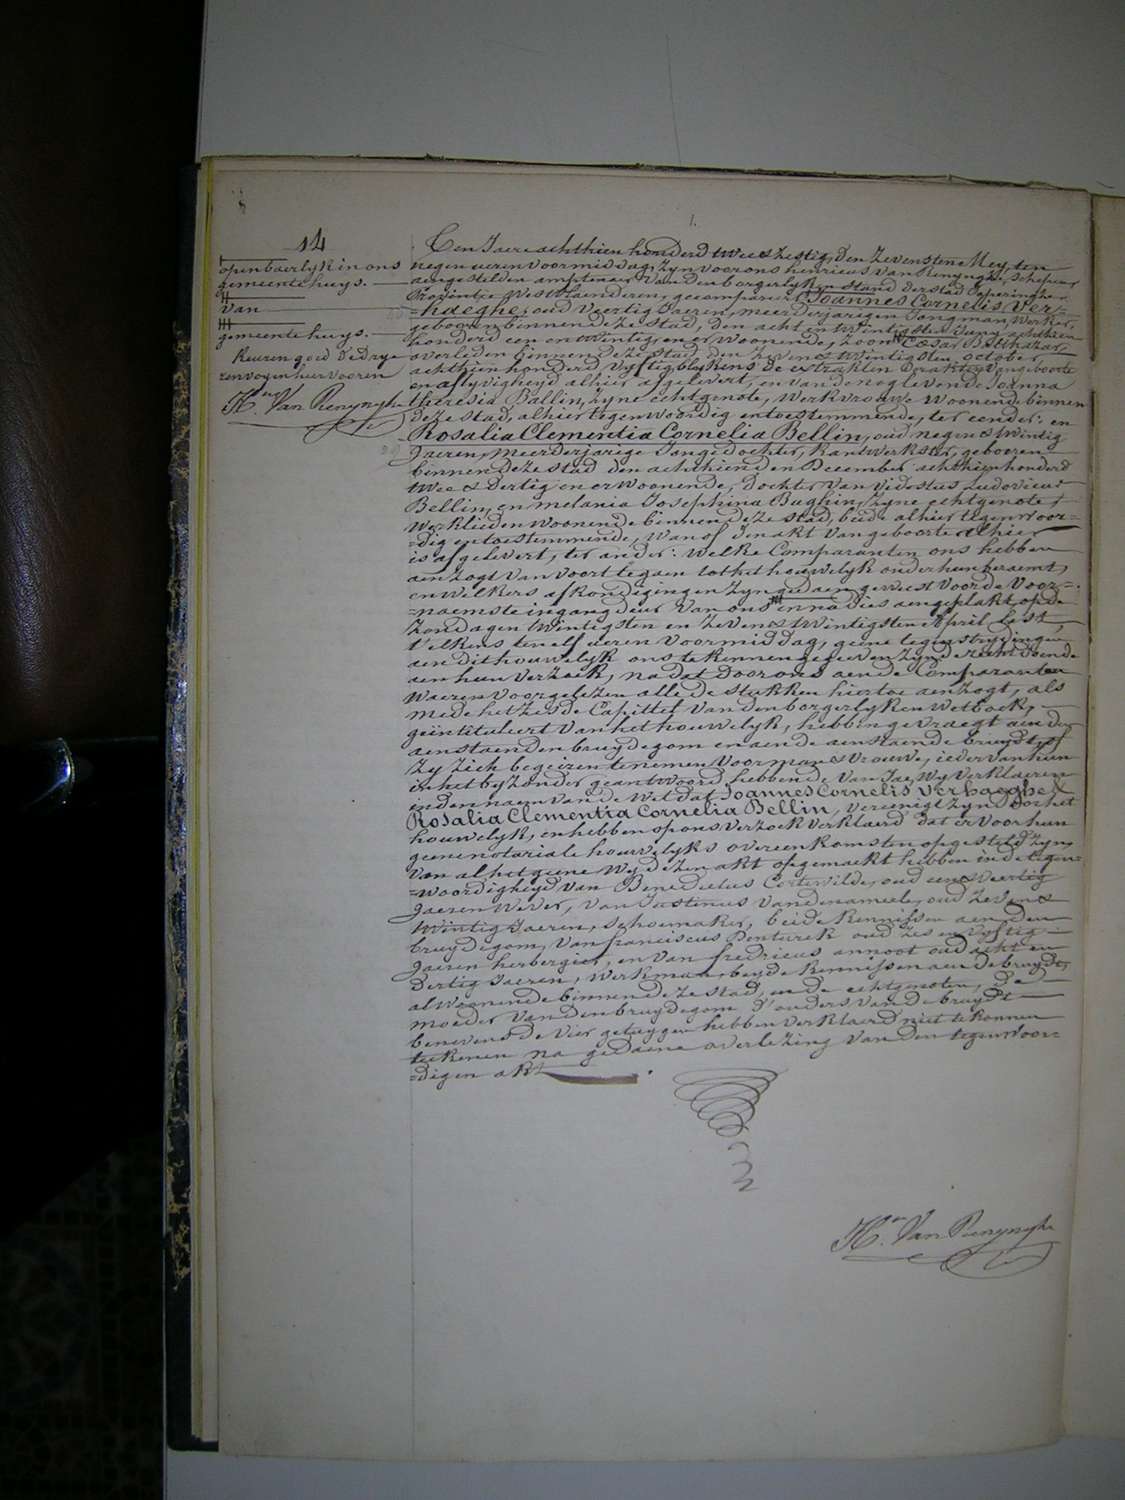 14
openbaerlyk in ons
gemeentehuys.
van
gemeentehuys.
Keuren goed de drye
renvoyen hier vooren
Hri. Van Renynghe
Een Jaere achthien honderd twee & zestig, den zevensten Mey, ten
negen ueren voormiddag, zyn voor ons henricus Van Renynghe, Schepen
aengestelden amptenaer van den borgerlyken stand der stad Poperinghe
Provintje Westvlaenderen, gecompareert Joannes Cornelis Ver=
=haeghe, oud veertig Jaeren, meerderjarigen Jongman, Werker,
gebooren binnen deze stad, den acht en twintigsten Juny achthien
honderd een en twintig, en er woonende, zoon van Cesar Balthazar
overleden binnen deze stad, den zeven & twintigsten october,
achthien honderd vyftig, blykens de extrakten der akten van geboorte
en aflyvigheyd alhier afgelevert, en van de nog levende Joanna
theresia Ballin, zyne echtgenote, Werkvrouwe woonende binnen
deze stad, alhier tegenwoordig en toestemmende, ter eender: en
Rosalia Clementia Cornelia Bellin, oud negen & twintig
Jaeren, meerderjarige Jongedochter, kantwerkster, gebooren
binnen deze stad den achthienden December achthien honderd
twee & dertig en er woonende, dochter van Ludovicus
Bellin, en melania Josephina Baghin, zyne echtgenote,
Werklieden woonende binnen deze stad, beide alhier tegenwoor=
=dig en toestemmende, wan of den akt van geboorte alhier
is afgelevert, ter ander: Welke Comparanten ons hebben
aenzogt van voort te gaen tot het houwelyk onder hun beraemt,
en welkers afkondigingen zyn gedaen geweest voor de voor=
=naemste ingang deur van ons en na dies aengeplakt op de
Zondagen twintigsten en zeven & twintigsten April lest,
telkens ten elf ueren voormiddag, geene tegenstrydingen
aen dit houwelyk ons te kennen gegeeven zynde recht doende
aen hun verzoek, na dat door ons aen de Comparanten
waeren voorgelezen alle de stukken hier toe aenzogt, als
mede het zesde Capittel van den borgerlyken Wetboek,
geintituleert van het houwelyk, hebben gevraegt aen den
aenstaenden bruydegom en aen de aenstaende bruydt, of
zy zich begeiren te nemen voor man & vrouwe, ieder van hun
in het byzonder geantwoord hebbende van Jae, Wy verklaeren
in den naem van de Wet dat Joannes Cornelis Verhaeghe &
Rosalia Clementia Cornelia Bellin, vereenigt zyn door het
houwelyk, en hebben op ons verzoek verklaerd dat er voor hun
geene notariale houwelyks overeenkomsten opgesteld zyn,
van al het geene Wy dezen akt opgemaekt hebben in de tegen=
=woordigheyd van Benedictus Cortewilde, oud een & veertig
Jaeren Wever, van Justinus Vandenameele, oud zeven &
twintig Jaeren, schoemaker, beide kennissen aen den
bruydegom, van franciscus Denturck oud zes en vyftig
Jaeren herbergier, en van fredricus annoot oud acht en
dertig Jaeren, Werkman, beyde kennissen aen de bruydt,
al woonende binnen deze stad, en de echtgenoten, de
moeder van den bruydegom d'ouders van de bruydt
benevens de vier getuygen hebben verklaerd niet te konnen
teekenen na gedaene overlezing van den tegenwoor=
=digen akt
Hri. Van Renynghe